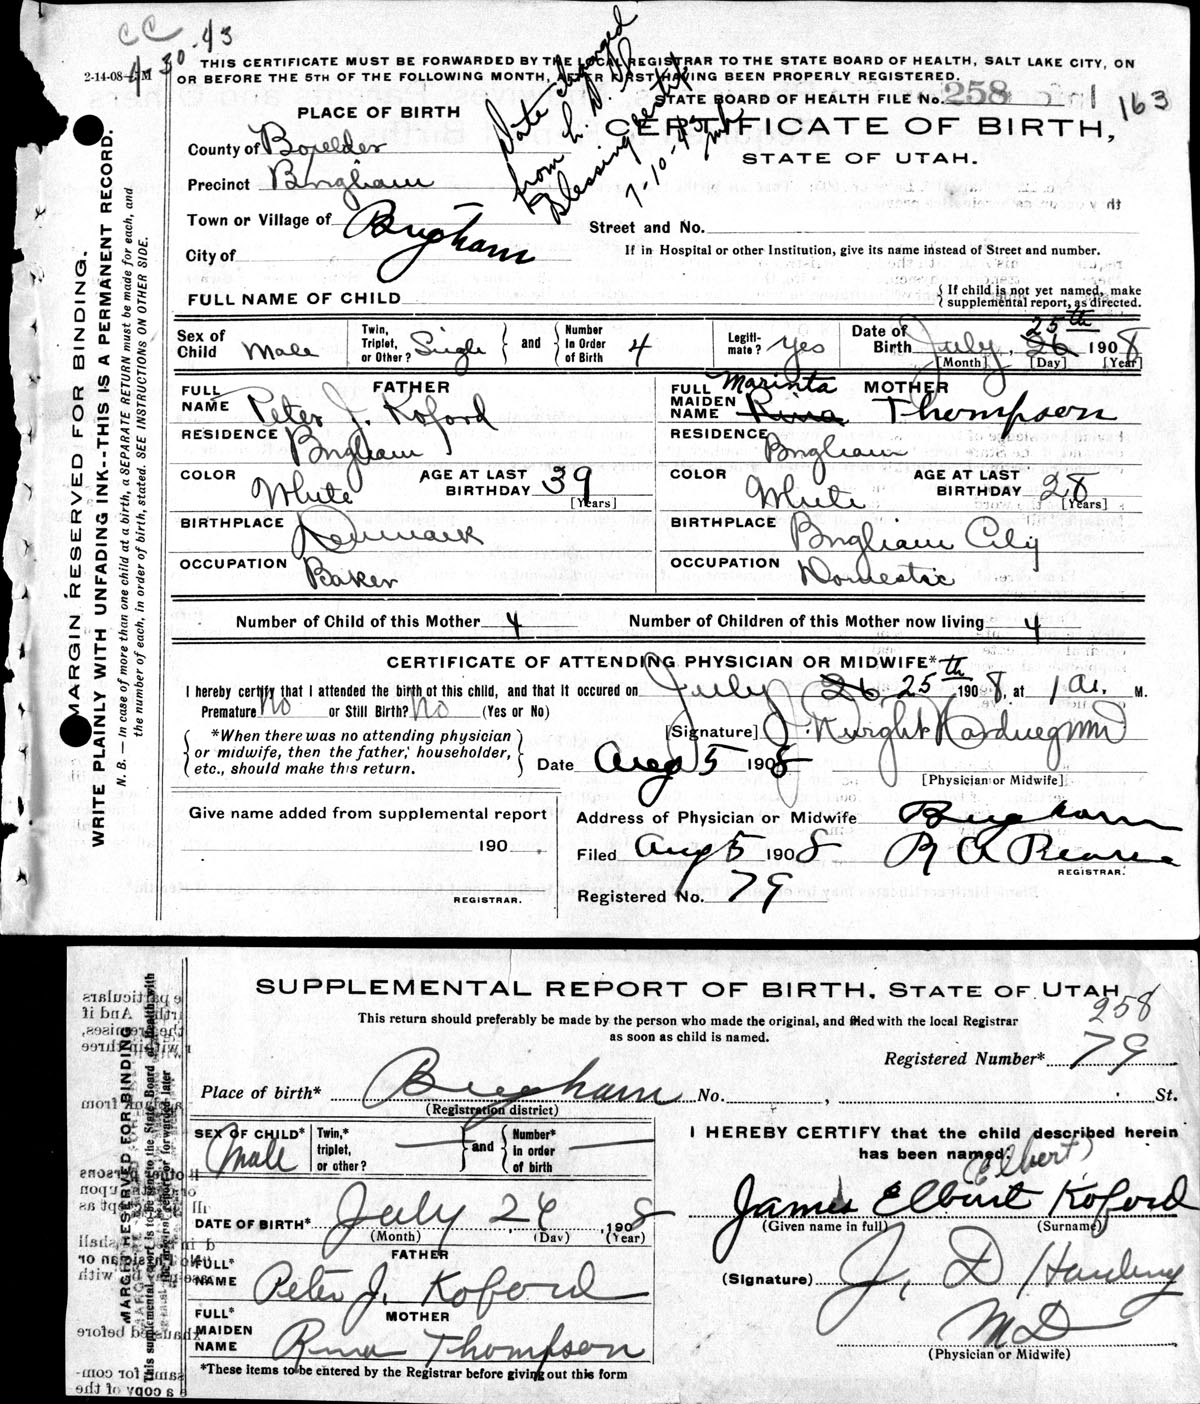 CC
4-30-43
2-14-08-4M
THIS CERTIFICATE MUST BE FORWARDED BY THE LOCAL REGISTRAR TO THE STATE BOARD OF HEALTH, SALT LAKE CITY, ON
OR BEFORE THE 5TH OF THE FOLLOWING MONTH, AFTER FIRST HAVING BEEN PROPERLY REGISTERED.
Date changed
from L. D. S.
Blessing certif.
7-10-43
STATE BOARD OF HEALTH FILE No. 258
163
PLACE OF BIRTH
CERTIFICATE OF BIRTH,
STATE OF UTAH.
County of Boxelder
Precinct Brigham
Town or Village of Brigham
Street and No.
City of
If in Hospital or other Institution, give its name instead of Street and number.
FULL NAME OF CHILD
{ If child is not yet named, make
supplemental report, as directed.
Sex of Child Male
Twin, Triplet, or Other? Single } and { Number In Order of Birth 4
Legitimate? yes
Date of Birth July, 26 25th 1908
[Month] [Day] [Year]
FATHER
FULL NAME Peter J. Koford
RESIDENCE Brigham
COLOR White AGE AT LAST BIRTHDAY 39
[Years]
BIRTHPLACE Denmark
OCCUPATION Baker
MOTHER
FULL MAIDEN NAME Rina Marinta Thompson
RESIDENCE Brigham
COLOR White AGE AT LAST BIRTHDAY 28
[Years]
BIRTHPLACE Brigham City
OCCUPATION Domestic
Number of Child of this Mother 4 Number of Children of this Mother now living 4
CERTIFICATE OF ATTENDING PHYSICIAN OR MIDWIFE*
I hereby certify that I attended the birth of this child, and that it occured on July 26 25th 1908, at 1 a. M.
Premature? No or Still Birth? No (Yes or No)
{ *When there was no attending physician
or midwife, then the father, householder,
etc., should make this return. }
[Signature]
Date Aug 5 1908
[Physician or Midwife]
Give name added from supplemental report
190
REGISTRAR.
Address of Physician or Midwife Brigham
Filed Aug 5 1908 R A Pearse
REGISTRAR.
Registered No. 79
MARGIN RESERVED FOR BINDING.
WRITE PLAINLY WITH UNFADING INK--THIS IS A PERMANENT RECORD.
N. B. — In case of more than one child at a birth, a SEPARATE RETURN must be made for each, and
the number of each, in order of birth, stated. SEE INSTRUCTIONS ON OTHER SIDE.
SUPPLEMENTAL REPORT OF BIRTH, STATE OF UTAH
258
This return should preferably be made by the person who made the original, and filed with the local Registrar
as soon as child is named.
Registered Number* 79
Place of birth* Brigham No. , St.
(Registration district)
SEX OF CHILD* Male
Twin,* triplet, or other? — } and { Number* in order of birth —
DATE OF BIRTH* July 24, 1908
(Month) (Day) (Year)
FATHER
FULL* NAME Peter J. Koford
MOTHER
FULL* MAIDEN NAME Rina Thompson
*These items to be entered by the Registrar before giving out this form
I HEREBY CERTIFY that the child described herein
has been named:
(Elbert)
James Elbert Koford
(Given name in full) (Surname)
(Signature) J. D Harding
MD
(Physician or Midwife)
MARGIN RESERVED FOR BINDING